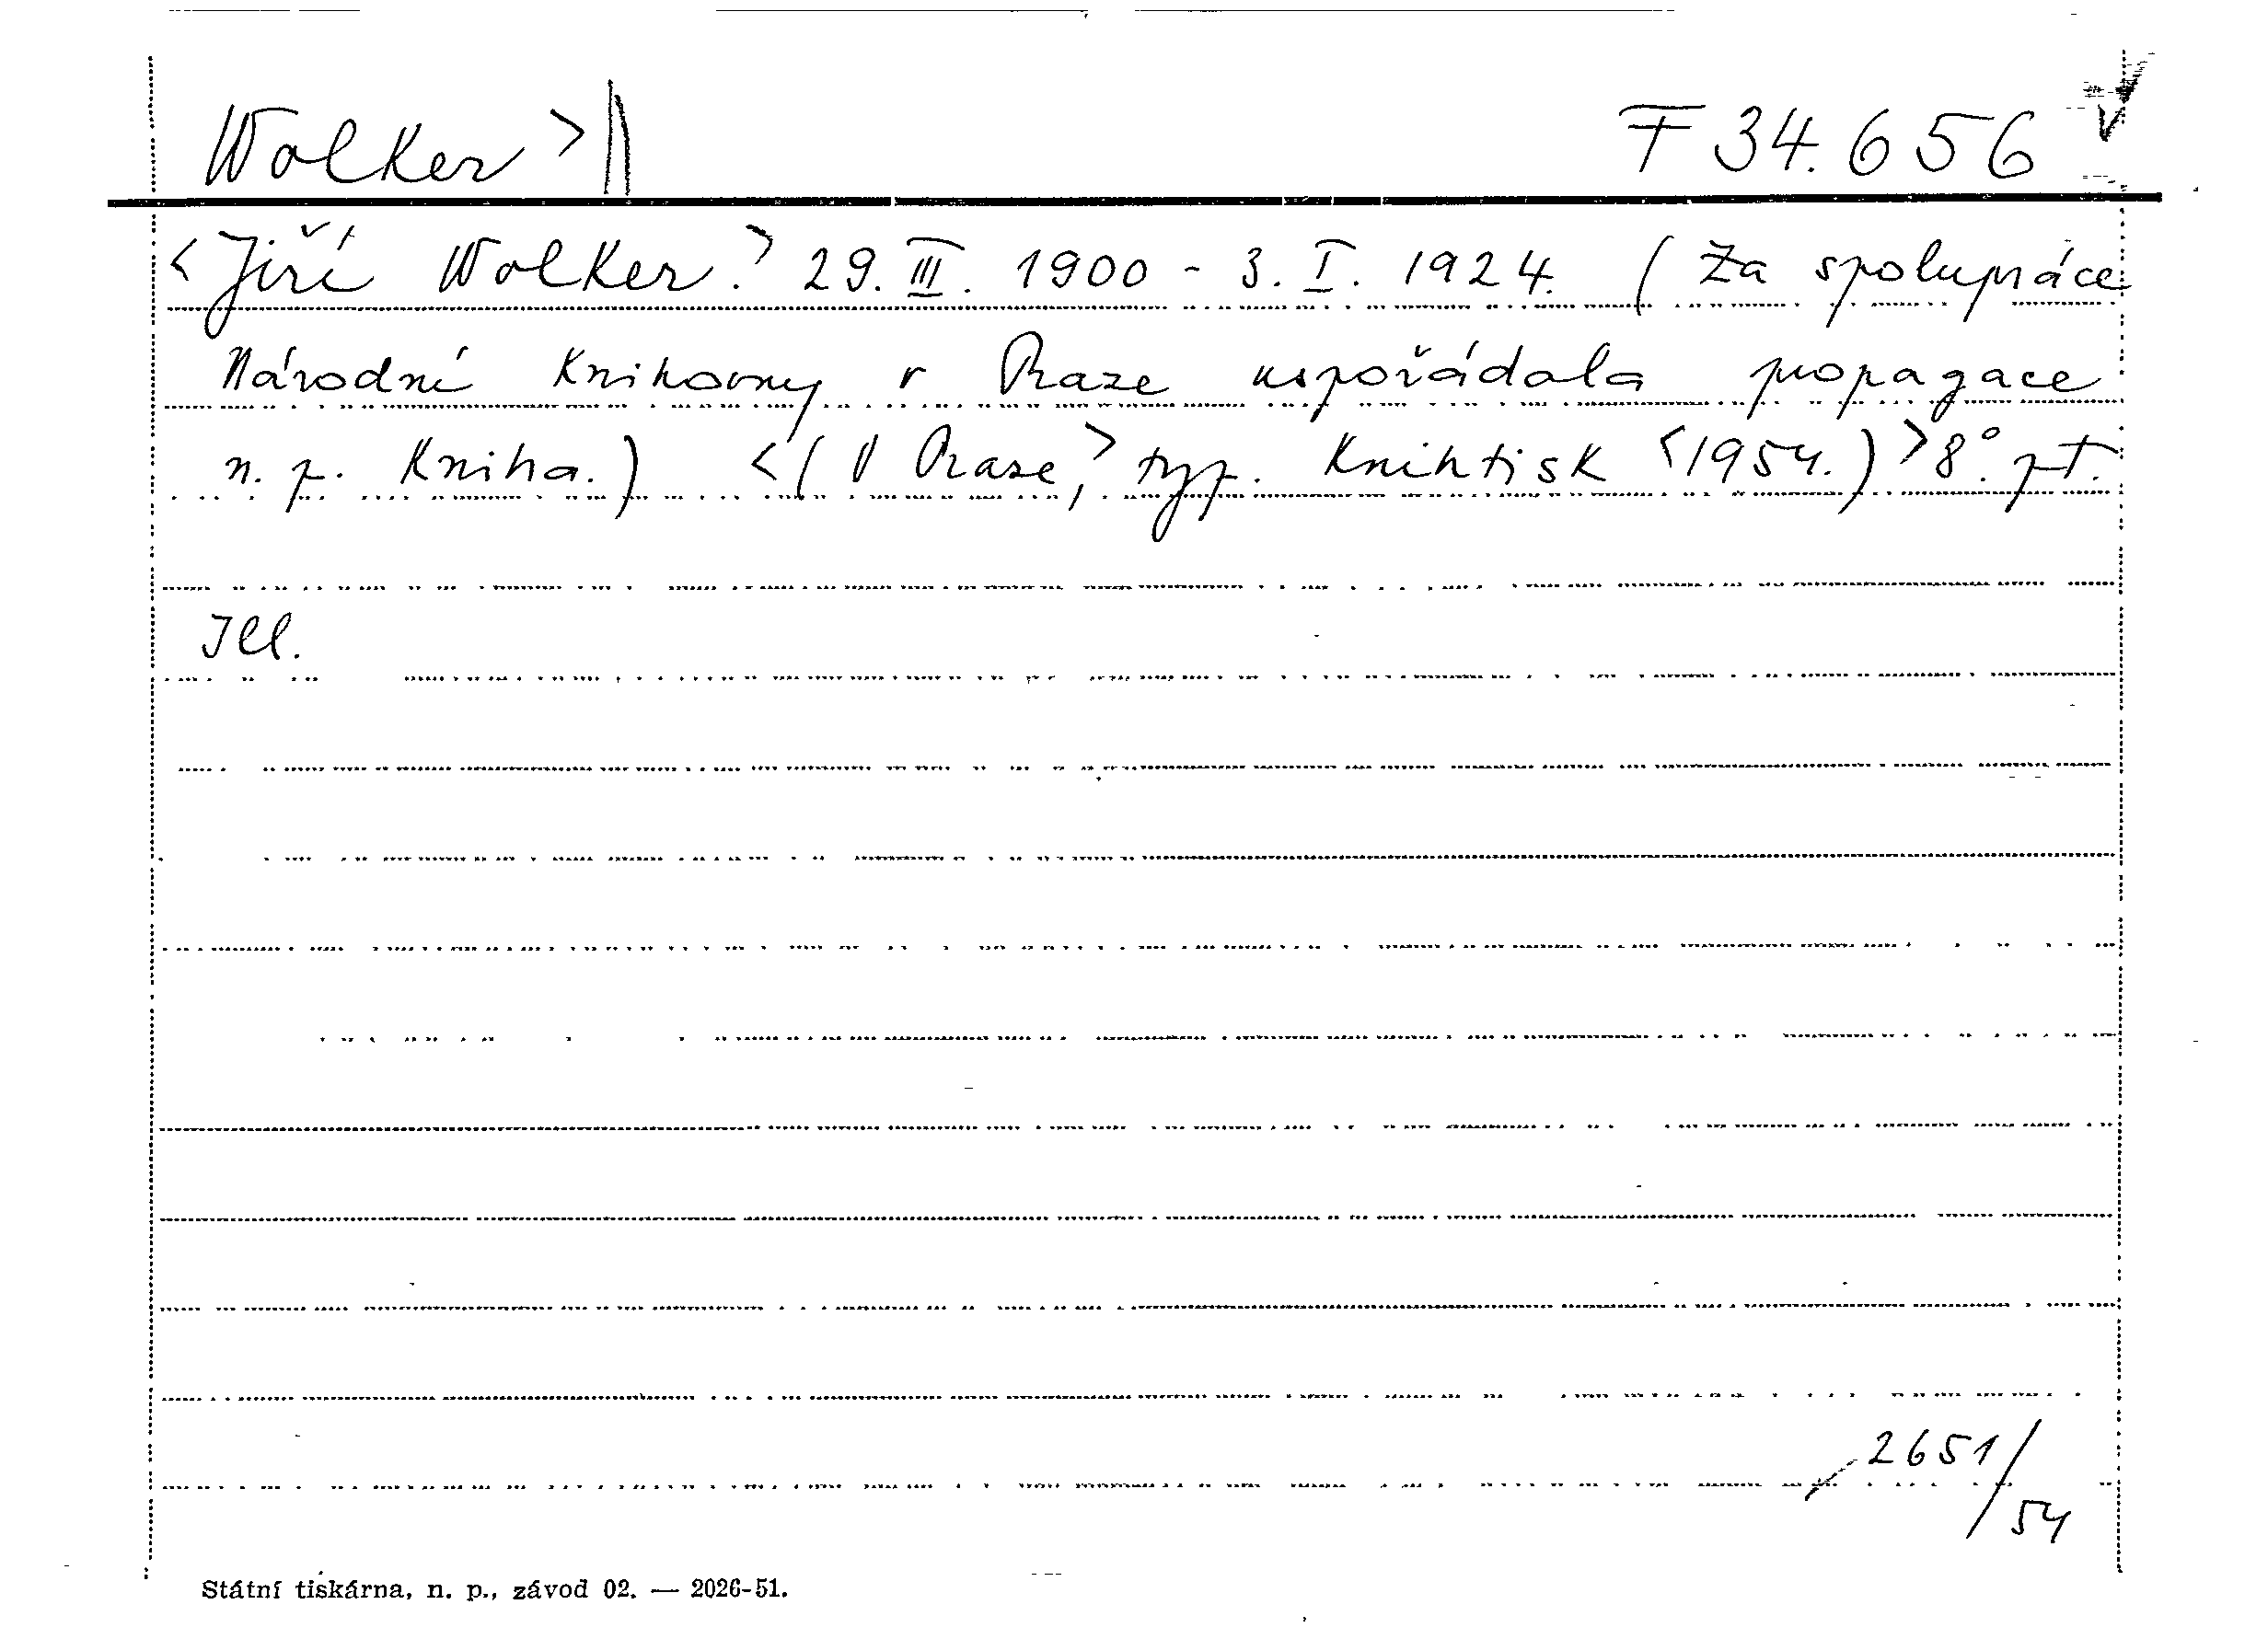 Wolker > F 34.656
<Jiří Wolker.> 29. III. 1900 - 3. I. 1924. (Za spolupráce
Národní Knihovny v Praze uspořádala propagace
n. p. Kniha.) <(V Praze,> typ. Knihtisk <1954.)> 8°. pt.
Ill.
2651/
54
Státní tiskárna, n. p., závod 02. — 2026-51.